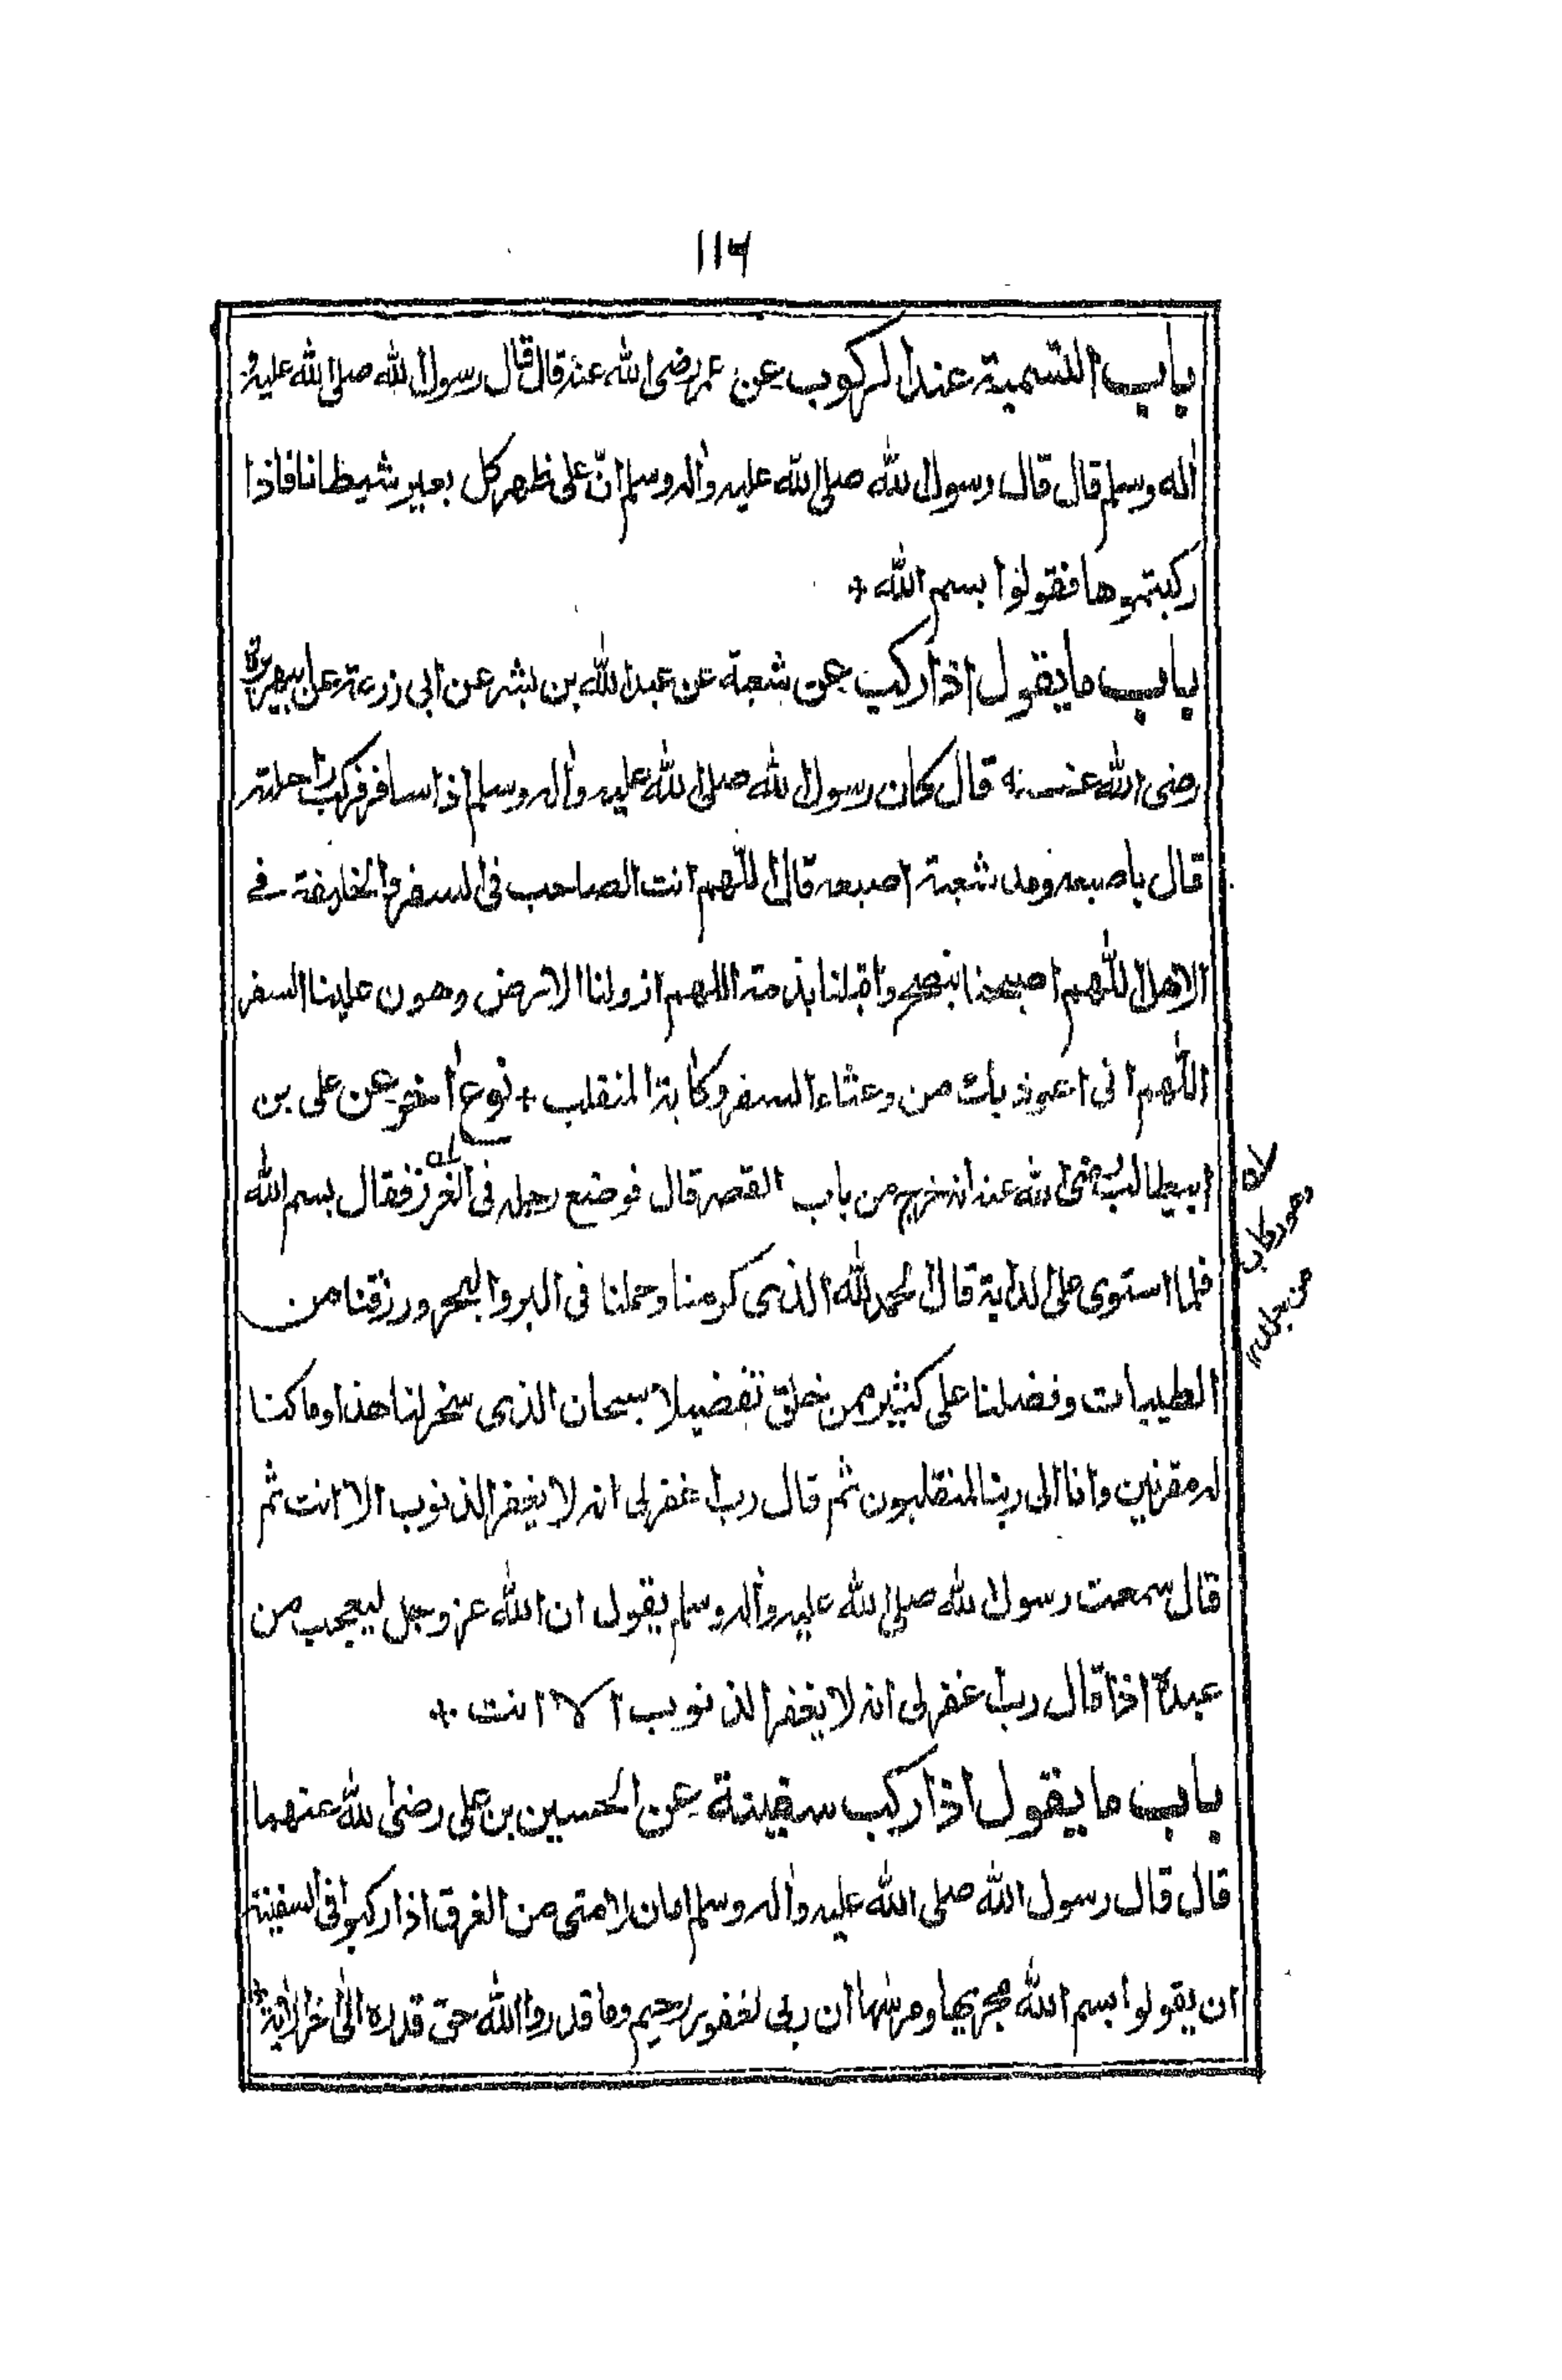 ۱۱۶
باب التسمية عند الركوب عن عمر رضى الله عنه قال قال رسول الله صلى الله عليه و
اله وسلم قال قال رسول الله صلى الله عليه واله وسلم ان على ظهر كل بعير شيطانا فاذا
ركبتموها فقولوا بسم الله +
باب ما يقول اذا ركب عن شعبة عن عبد الله بن بشر عن ابى زرعة عن ابيهريرة
رضى الله عنه قال كان رسول الله صلى الله عليه واله وسلم اذا سافر فركب راحلته
قال باصبعه ومد شعبة اصبعه قال اللهم انت الصاحب فى السفر والخليفة فے
الاهل اللهم اصبحنا بنصح واقبلنا بذمة اللهم ازولنا الارض وهون علينا السفر
اللهم انى اعوذ بك من وعثاء السفر وكابة المنقلب + نوع اخر عن على بن
ابيطالب رضى الله عنه انه خرج من باب القصر قال فوضع رجله فى الغرز فقال بسم الله
فلما استوى على الدابة قال الحمد لله الذى كرمنا وحملنا فى البر والبحر ورزقنا من
الطيبات وفضلنا على كثير ممن خلق تفضيلا سبحان الذى سخر لنا هذا وما كنا
له مقرنين وانا الى ربنا لمنقلبون ثم قال رب اغفر لى انه لا يغفر الذنوب الا انت ثم
قال سمعت رسول الله صلى الله عليه واله وسلم يقول ان الله عز وجل ليعجب من
عبده اذا قال رب اغفر لى انه لا يغفر الذنوب الا انت +
باب ما يقول اذا ركب سفينة عن الحسين بن على رضى الله عنهما
قال قال رسول الله صلى الله عليه واله وسلم امان لامتى من الغرق اذا ركبوا فى السفينة
ان يقولوا بسم الله مجريها ومرسها ان ربى لغفور رحيم وما قدروا الله حق قدره الى اخر الاية